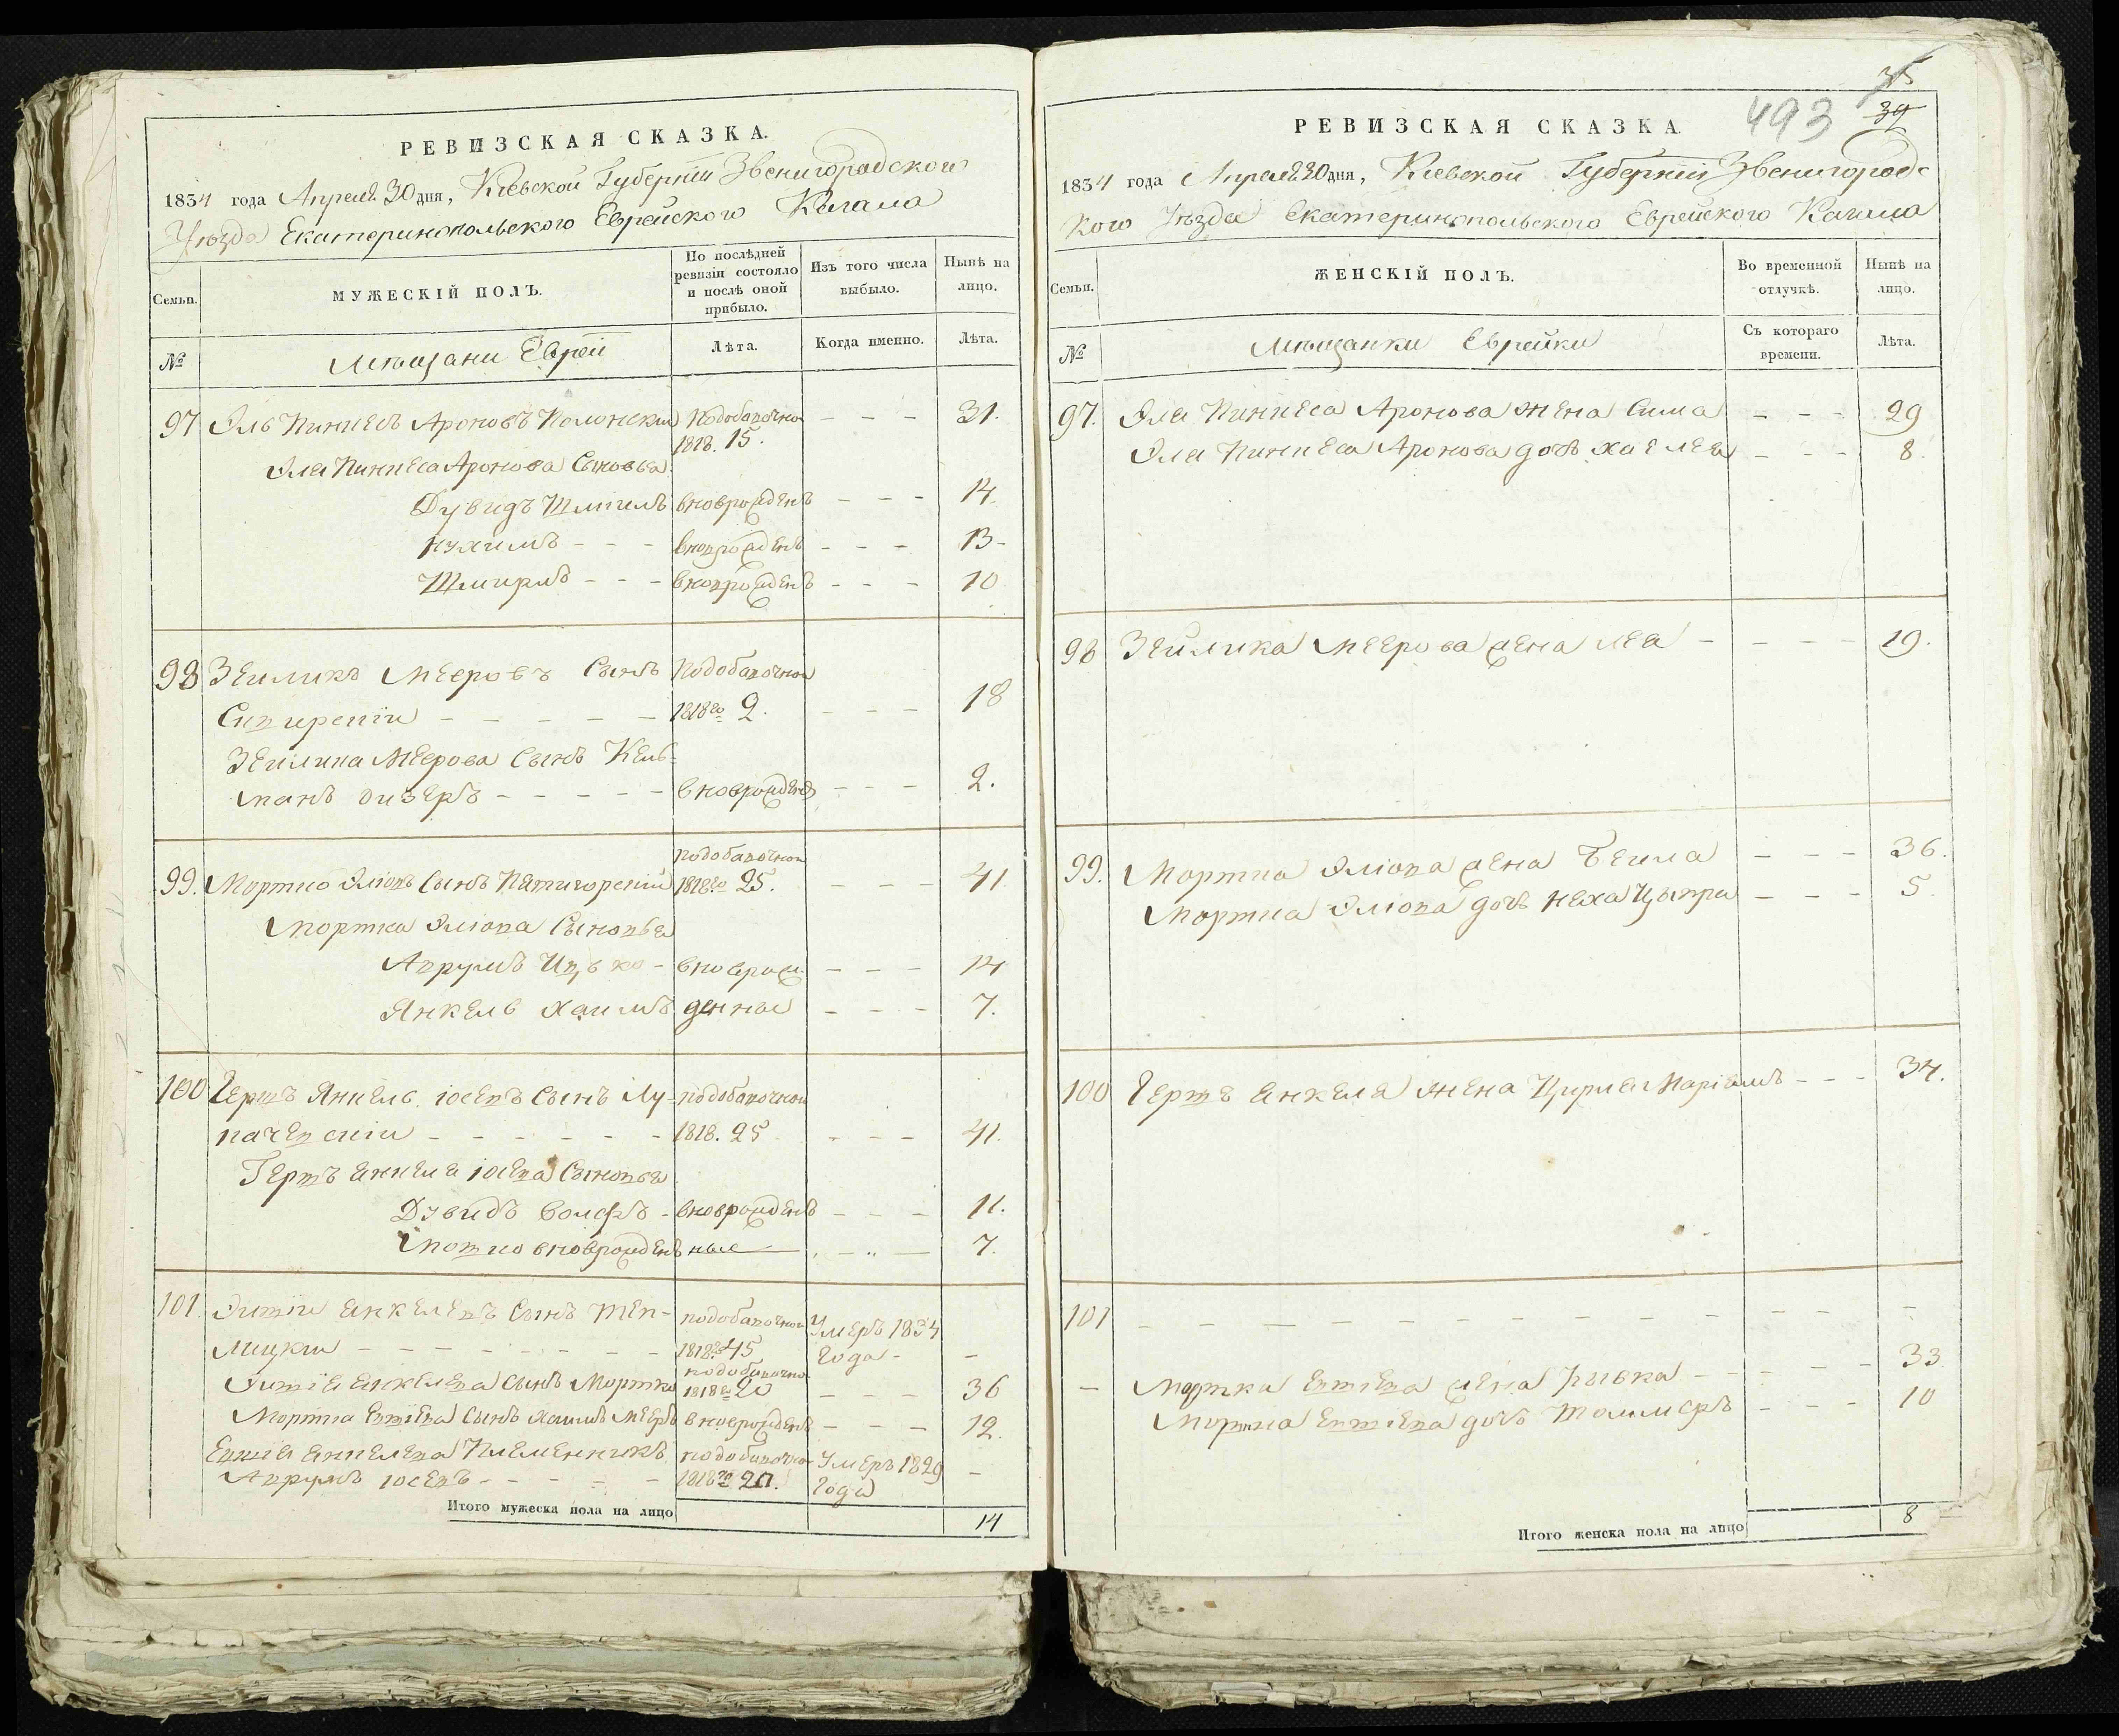 РЕВИЗСКАЯ СКАЗКА.
1834 года Апреля 30 дня, Кіевской Губерніи Звенигородского
Уезда Екатеринопольского Еврейского Кагала
Семьи.
МУЖЕСКІЙ ПОЛЪ.
По послѣдней ревизіи состояло и послѣ оной прибыло.
Изъ того числа выбыло.
Нынѣ на лицо.
№
Мещани Евреи
Лѣта.
Когда именно.
Лѣта.
97 Эль Пинпесъ Ароновъ Полонскии Подобавочной 1818. 15. – – – 31.
Эли Пинпеса Аронова Сыновья
Дувидъ Шмилъ вноврожденъ – – – 14.
Нухимъ – – – вноврожденъ – – – 13
Шмирлъ – – – вноврожденъ – – – 10
98 Зеиликъ Мееровъ Сынъ Подобавочной
– – – – – 1818го 2. – – – 18
Зеилика Меерова Сынъ Кель-
манъ Визеръ – – – – – вноврожденъ – – – 2.
99. Мортко Эліовъ Сынъ Пятигорскій подобавочной 1818го 25. – – – 41
Мортка Эліова Сыновья
Аврумъ Ицько – вноврож – – – 14
Янкель Хаимъ денные – – – 7.
100 Гершъ Янкель іосевъ Сынъ Лу- подобавочной
качевскіи – – – – – – 1818. 25 – – – 41.
Гершъ Янкеля іосева Сыновья
Дувидъ Вольфъ – вноврожденъ – – – 11.
Мошко вноврожденные – „ – 7.
101. Янкелевъ Сынъ Теп- подобавочной Умеръ 1834
лицкіи – – – – – – – 1818го 45 года – –
Янкелева Сынъ Мортко подобавочной 1818го 20 – – – 36
Мортка Евшева Сынъ Хаимъ Мееръ вноврожденъ – – – 12.
Евшія Анкелева Племенникъ подобавочной Умеръ 1829 –
Аврумъ іосевъ – – – – – 1818го 20. Года
Итого мужеска пола на лицо 14
35
39
493
РЕВИЗСКАЯ СКАЗКА.
1834 года Апреля 30 дня, Кіевской Губерніи Звенигородс
кого Уезда Екатеринопольского Еврейского Кагала
Семьи.
ЖЕНСКІЙ ПОЛЪ.
Во временной отлучкѣ.
Нынѣ на лицо.
№
Мещанки Еврейки
Съ котораго времени.
Лѣта.
97. Эли Пинпеса Аронова жена Сима – – – 29
Эли Пинпеса Аронова дочь Хае Леа – – – 8.
98 Зейлика Меерова жена Леа – – – – 19.
99. Мортка Эліова жена Беила – – – 36.
Мортка Эліова дочь Неха Цыпра – – – 5.
100 Гершъ Анкеля жена Цирля Маріамъ – – – 34.
101 – – – – – – – – – – – –
– Мортки Евшева жена Рывка – – – – 33
Мортка Евшева дочь – – – 10
Итого женска пола на лицо 8